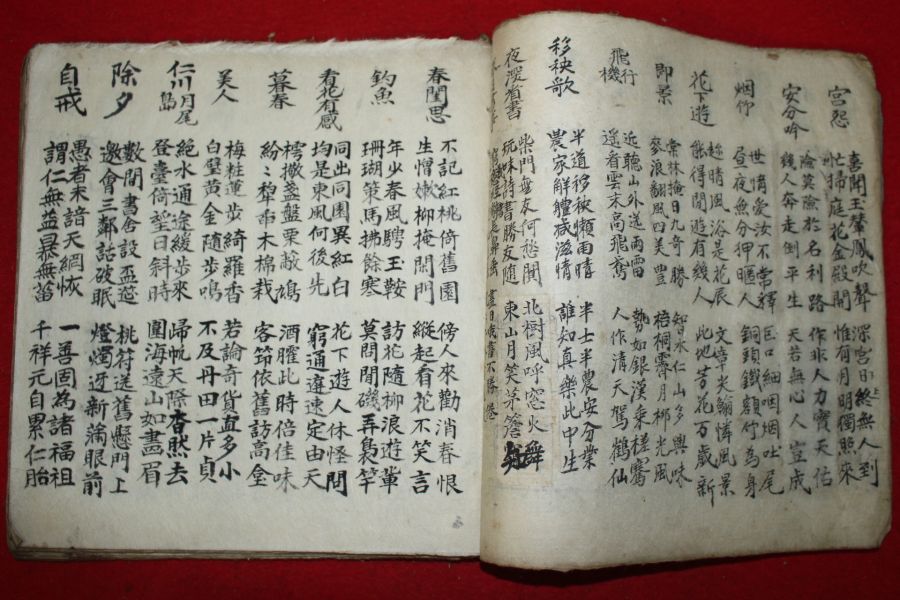 宮怨
喜聞玉輦鳳吹聲
忙掃庭花金殿開
深宮日終無人到
惟有月明獨照來
安分吟
險莫險於名利路
幾人奔走倒平生
作非人力寶天佑
天若無心人豈成
烟竹
世情愛汝不常釋
晝夜無分押暱人
口細咽烟吐尾
銅頭鐵額竹為身
花下遊
趁晴風浴是花辰
能得閒遊有幾人
文章憐風景
此地芳花万歲新
即景
棠林掩日九奇勝
麥浪翻風四美豊
智水仁山多興味
梧桐霽月柳光風
飛行機
近聽山外逆雨雷
遥看雲末高飛鳶
勢如銀漢乘槎騫
人作清天駕鶴仙
移秧歌
半道移秧懶雨晴
農家鮮軆減滋情
半士半農安分業
誰知真樂此中生
夜深看書
柴門無友何愁閴
玩味詩書勝友随
北樹風呼窓火舞
東山月笑茅簷
春閨思
不記紅桃倚舊園
生憎嫩柳掩閒門
傍人來勸消春恨
縱起看花不笑言
釣魚
年少春風騁玉鞍
珊瑚策馬拂餘寒
訪花隨柳浪遊輩
莫問閒磯再梟竿
看花有感
同出同園異紅白
均是東風何後先
花下遊人休怪問
窮通遲速定由天
暮春
樗撒盞盤栗敲
紛々犂雨木棉栽
酒臛此時倍佳味
客筇依舊訪高
美人
梅粧蓮步綺羅香
白璧黃金隨步鳴
若論奇貨直多小
不及丹田一片貞
仁川月尾島
絕水通途緩步來
登臺倚望日斜時
歸帆天際杳然去
圍海遠山如畫眉
除夕
數間書舍設盃巡
邀會三鄰話破眠
桃符送舊懸門上
燈燭迎新滿眼前
自戒
愚者未諳天綱恢
謂仁無益暴無菑
一善固為諸福祖
千祥元自累仁胎